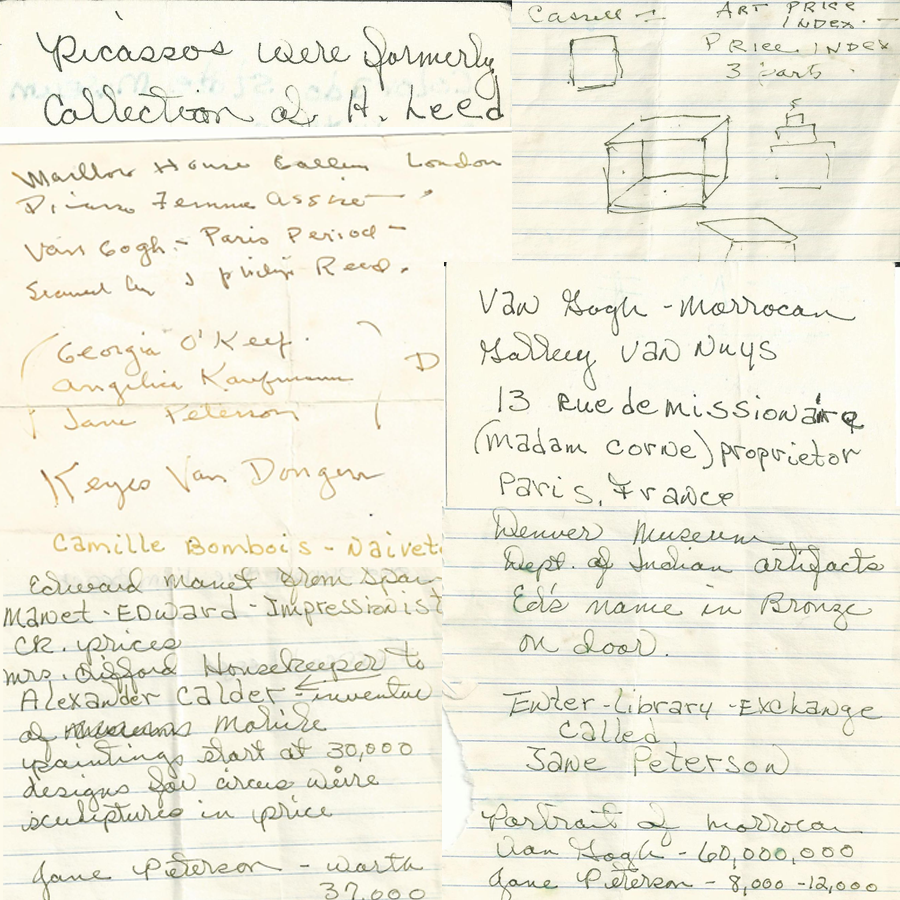 Picassos were formerly
Collection of H. Leed
Marllow House Gallery London
Picasso Femme Assise
Van Gogh - Paris Period -
by J philip Reed.
Georgia O'Keef.
Angelica Kaufmann
Jane Peterson
D
Keyes Van Dongen
Camille Bombois - Naivete
Edward Manet from Spain
Manet - EDward - Impressionist
CK. prices
mrs. Gifford Housekeeper to
Alexander Calder - inventor
of Mobile
paintings start at 30,000
designs for circus were
sculptures in price
Jane Peterson - worth
37,000
Cassell -
ART PRICE
INDEX. -
PRICE INDEX
3 parts.
Van Gogh - Morrocan
Gallery VAN NUYS
13 Rue de missionaire
(Madam Corne) proprietor
Paris, France
Denver Museum
Dept. of Indian artifacts
Ed's name in Bronze
on door.
Enter-Library -Exchange
Called
Jane Peterson
Portrait of morrocan
Van Gogh - 60,000,000
Jane Peterson - 8,000 -12,000